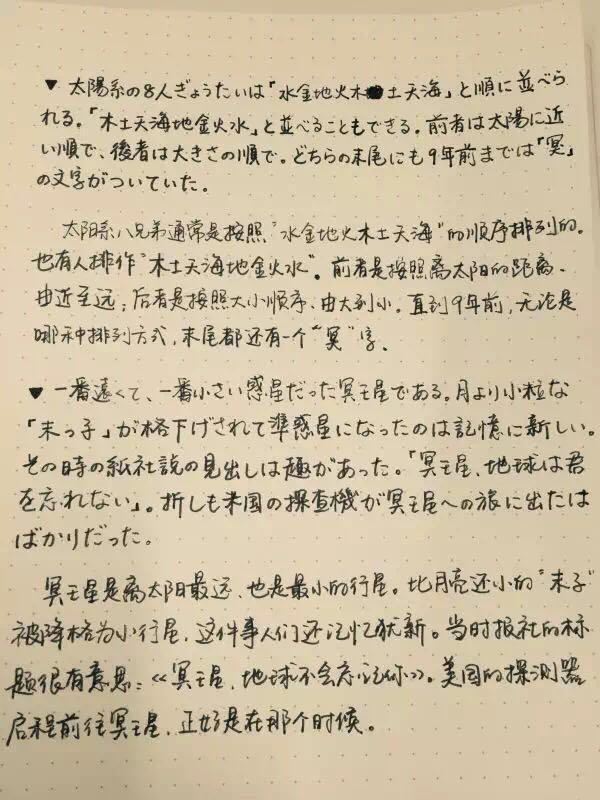 ▼ 太陽系の8人ぎょうたいは「水金地火木土天海」と順に並べら
れる。「木土天海地金火水」と並べることもできる。前者は太陽に近
い順で、後者は大きさの順で。どちらの末尾にも9年前までは「冥」
の文字がついていた。
太阳系八兄弟通常是按照“水金地火木土天海”的顺序排列的。
也有人排作“木土天海地金火水”。前者是按照离太阳的距离、
由近至远；后者是按照大小顺序、由大到小。直到9年前，无论是
哪种排列方式，末尾都还有一个“冥”字。
▼ 一番遠くて、一番小さい惑星だった冥王星である。月より小粒な
「末っ子」が格下げされて準惑星になったのは記憶に新しい。
その時の紙社説の見出しは趣があった。「冥王星、地球は君
を忘れない」。折しも米国の探査機が冥王星への旅に出たは
ばかりだった。
冥王星是离太阳最远、也是最小的行星。比月亮还小的“末子”
被降格为小行星，这件事人们还记忆犹新。当时报社的标
题很有意思：《冥王星，地球不会忘记你》。美国的探测器
启程前往冥王星，正好是在那个时候。